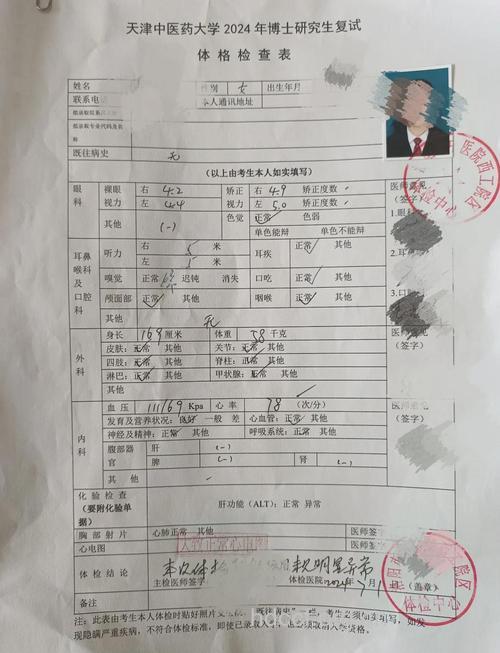 天津中医药大学 2024 年博士研究生复试
体格检查表
姓名 性别 女 出生年月
联系电话 本人通讯地址
拟录取院系
拟录取专业代码及名称
既往病史 无
(以上由考生本人如实填写)
眼科 裸眼视力 右 4.2 矫正视力 右 4.9 矫正度数 医师意见
左 4.4 左 5.0 矫正度数 (签字)
其他 (-) 色觉 正常 色弱 1.眼科
单色能辩 单色不能辩
耳鼻喉科及口腔科 听力 右 5 米 耳疾 正常 其他
左 5 米 2.耳
嗅觉 正常 迟钝 消失 口吃 正常 其他
颅面部 正常 其他 咽喉 正常 其他 3.口腔
其他 无
外科 身长 169 厘米 体重 58 千克 医师意见
皮肤:正常 其他 关节:正常 其他 (签字)
四肢:正常 其他 脊柱:正常 其他
淋巴:正常 其他 甲状腺:正常 其他
其他
内科 血压 111/69 Kpa 心率 78 (次/分) 医师意见
发育及营养状况:良好 一般 差 心血管:正常 其他 (签字)
神经及精神:正常 其他 呼吸系统:正常 其他
腹部器官 肝 (-)
脾 (-) 肾 (-)
其他
化验检查(要附化验单据) 肝功能(ALT):正常 异常
胸部射片 心肺正常 其他 医师签字
心电图 正常心电图 医师签字
体格结论 本次体检 未见明显异常
主检医师签字 体检医院 2024年 月 (盖章)
备注
注:此表由考生本人体检时贴好照片 既往病史 考生必须如实填写,如发
现隐瞒严重疾病,不符合体检标准,即使已录取入学,也必须取消入学资格。
医院西工院区
体检中心
院区
体检中心